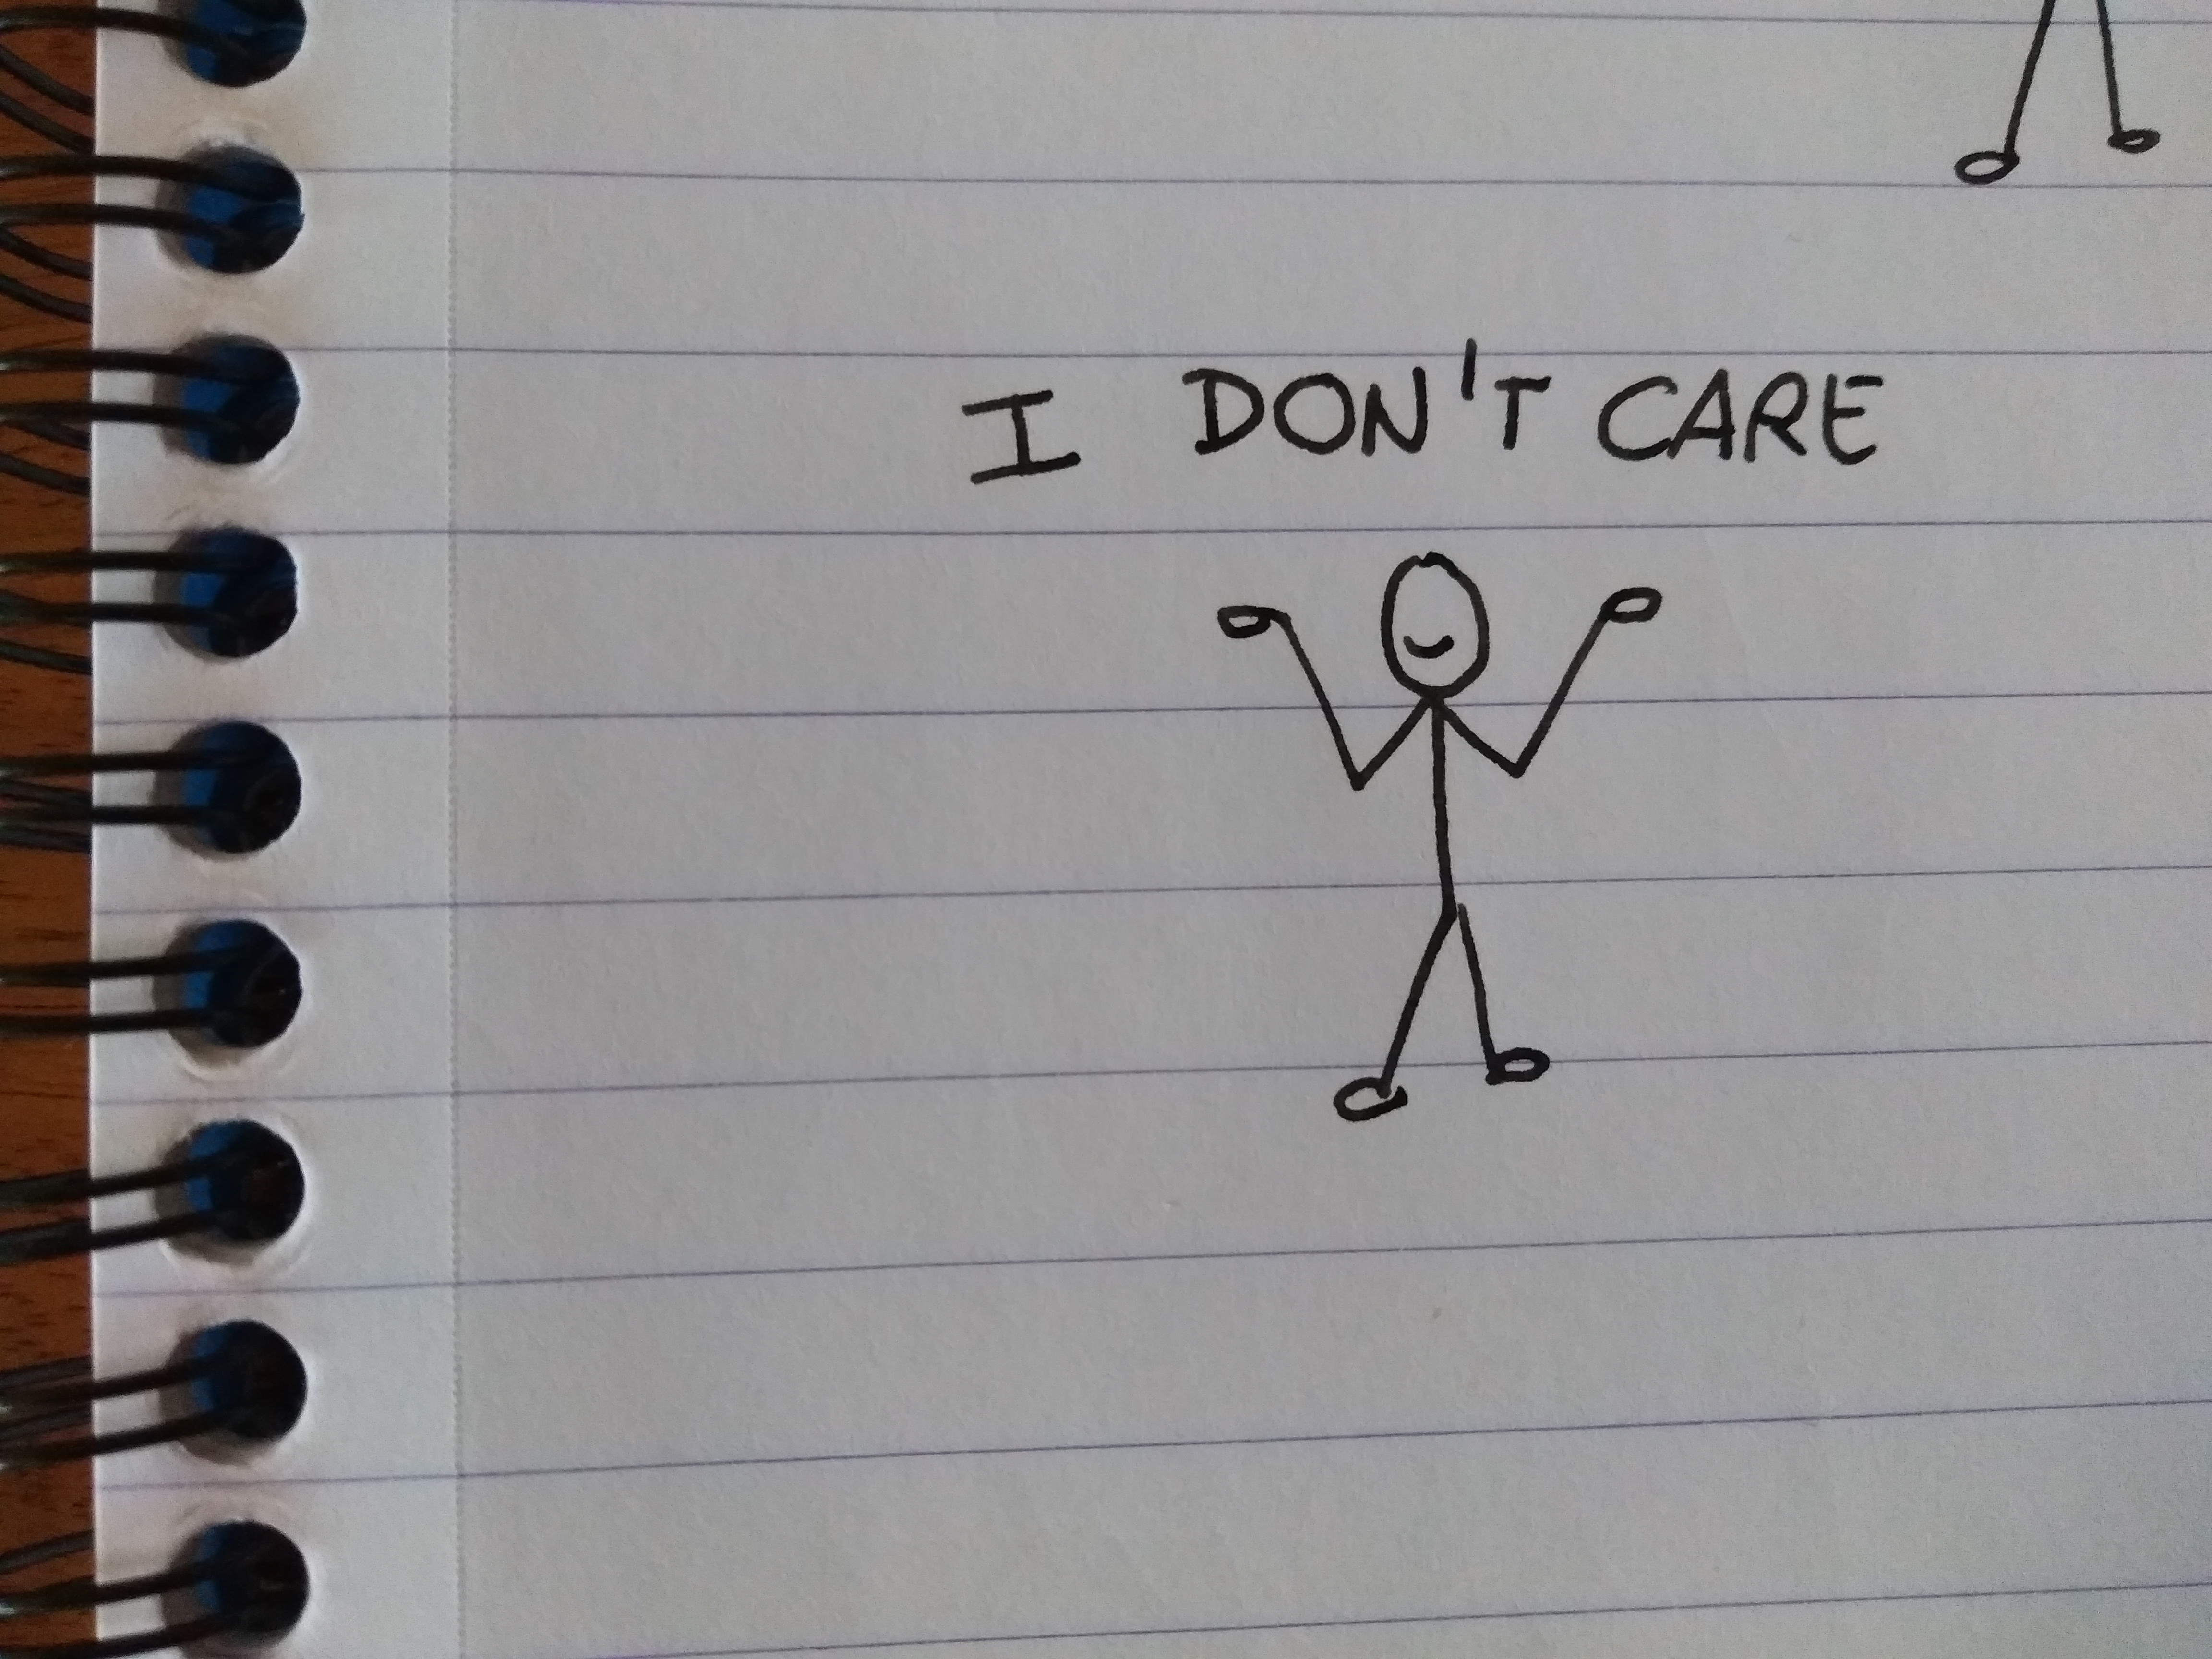 I DON'T CARE